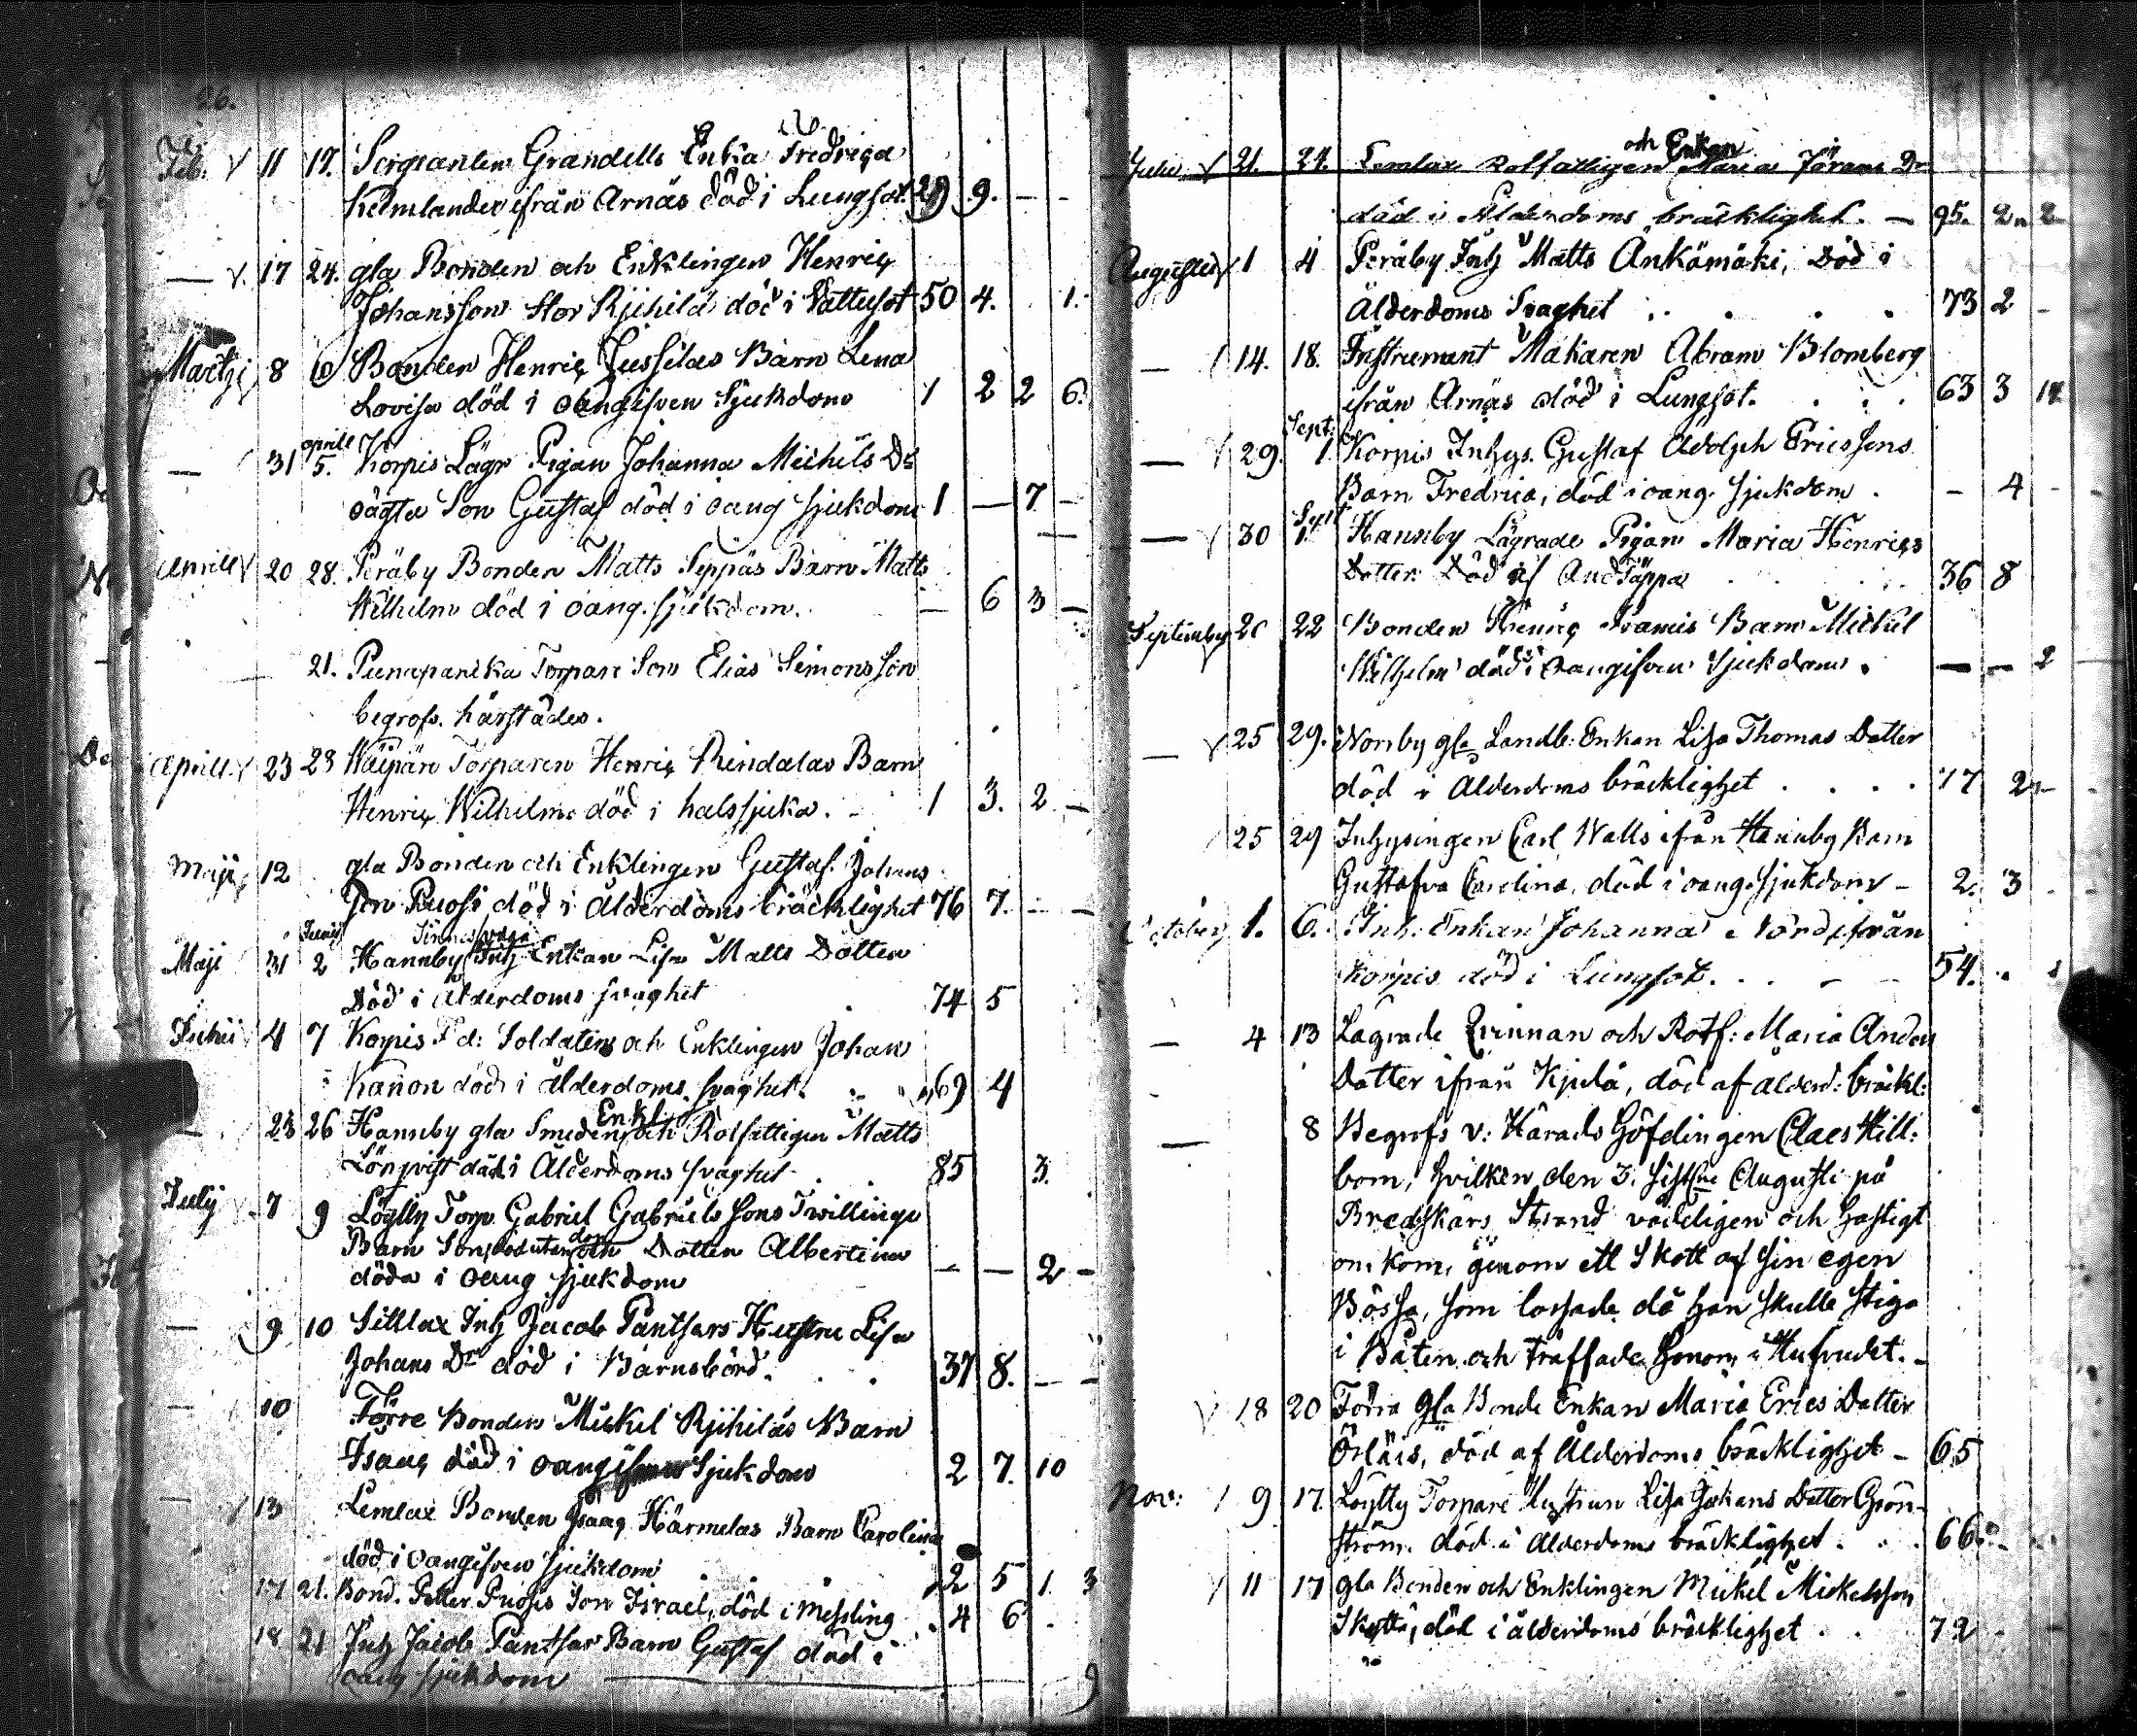 26.
Feb. 11 17. Sergeanten Grandells Enka Fredrica
Kumlander ifrån Arnäs död i Lungsot. 29 9. — -
— 17 24. gla Bonden och Enklingen Henric
Johansson Stor Rjihilä död i Vattusot 50 4. . 1.
Martii 8 10 Bonden Henric Jussilas Barn Lena
Lovisa död i oangifven Sjukdom 1 2 2 6.
— 31 aprill 5. Korpis Lägr Pigan Johanna Michels Dr
oägta Son Gustaf död i oang sjukdom 1 — 7 -
Aprill 20 28. Peräby Bonden Matts Seppäs Barn Matts
Wilhelm död i oang. sjukdom. — 6 3 —
21. Torpare Son Elias Simonsson
begrofs. härstädes.
Aprill. 23 23 Torparen Henric Rindalas Barn
Henric Wilhelm död i halssjuka. 1 3. 2 —
Maji 12 gla Bonden och Enklingen Gustaf Johans
son Puosi död i Ålderdoms bräcklighet 76 7. — —
Junij
Maji 31 2 Hannby Inh Enkan Lisa Matts Dotter
död i ålderdoms svaghet 74 5
Junii 4 7 Korpis F d: Soldaten och Enklingen Johan
Kanon död i ålderdoms svaghet. 69 4
Enkl
— 23 26 Hannby gla Smeden och Rotfattigen Matts
Lönqvist död i Ålderdoms svaghet 85 3.
Julij 7 9 Löytty Torp Gabriel Gabrielssons Twillinge
Barn Son och Dotter Albertina
döda i oang sjukdom — — 2 -
— 9 10 Sitlax Inh Jacob Pantsars Hustru Lisa
Johans Dr död i Barnsbörd. 37 8. — -
— 10 Förre Bonden Mickel Rjihiläs Barn
Isaac död i oangifven Sjukdom 2 7. 10
— 13 Lemlax Bonden Isaac Härmelas Barn Carolina
död i oangifven sjukdom 2 5 1. 3
17 21. Bond. Petter Puosis Son Israel, död i Messling 4 6
18 21 Inh Jacob Pantsar Barn Gustaf död i
oang sjukdom
och Enkan
Julii 21. 24. Lemlax Rotfattigen Maria Jörans Dr
död i Ålderdoms bräcklighet. — 95. 2 2
Augusti 1 4 Peräby Inh Matts Ankämäki, död i
Ålderdoms Svaghet 73 2 -
— 14. 18. Instrument Makaren Abram Blomberg
ifrån Arnäs död i Lungsot. 63 3 14
Sept.
— 29. 1. Korpis Inhys. Gustaf Adolph Ericssons
Barn Fredrica, död i oang. sjukdom. — 4 -
Sept
— 30 1. Hannby Lägrade Pigan Maria Henrics
Dotter. Död af Andtäppa 36 8
September 20 22 Bonden Henric Barn Mickel
Wilhelm död i oangifven Sjukdom. — — 2
— 25 29. Norrby gla Landb: Enkan Lisa Thomas Dotter
död i Ålderdoms bräcklighet 77 2 -
25 29 Inhysingen Carl Walls ifrån Hannby Barn
Gustafva Carolina, död i oang. sjukdom — 2. 3
October 1. 6. Inh. Enkan Johanna Nord ifrån
Korpis död i Lungsot. — — 54.
— 4 13 Lägrade Qvinnan och Rotf: Maria Anders
Dotter ifrån Kjulä, död af ålderd: bräckl:
— 8 Begrofs v: Härads Höfdingen Claes Hill:
bom, hvilken den 3. sistlne Augusti på
Bredskärs Strand vådeligen och hastigt
omkom, genom ett Skott af sin egen
Bössa, som lossade då han skulle stiga
i Båten och träffade honom i Hufvudet. -
18 20 Förra gla Bonde Enkan Maria Erics Dotter
död af Ålderdoms bräcklighet - 65
Nov: 9 17. Löytty Torpare Hustrun Lisa Johans Dotter Grön-
ström. död i Ålderdoms bräcklighet. 66.
11 17 gla Bonden och Enklingen Mickel Mickelsson
Skyttä, död i ålderdoms bräcklighet 72